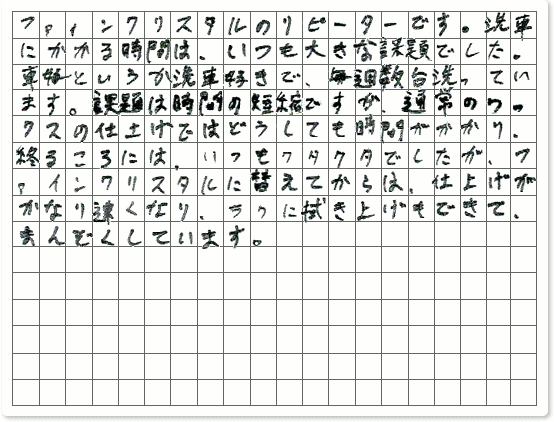 ファインクリスタルのリピーターです。洗車
にかかる時間は、いつも大きな課題でした。
車好というか洗車好きで、毎週数台洗ってい
ます。課題は時間の短縮ですが、通常のワッ
クスの仕上げではどうしても時間がかかり、
終るころには、いつもクタクタでしたが、フ
ァインクリスタルに替えてからは、仕上げが
かなり速くなり、ラクに拭き上げもできて、
まんぞくしています。